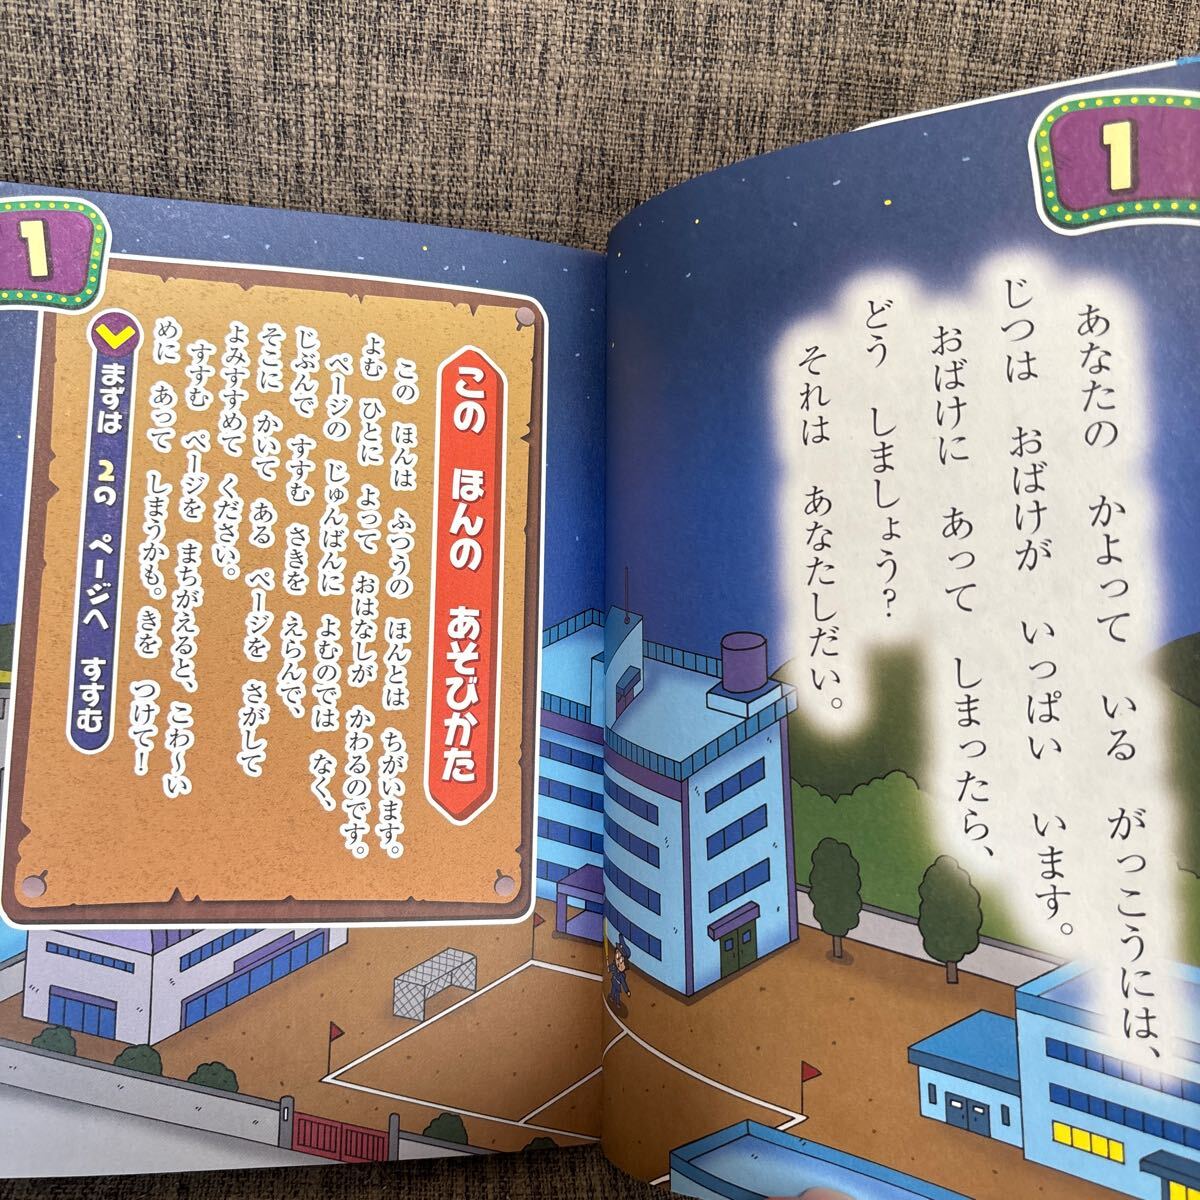 1
あなたの かよって いる がっこうには、
じつは おばけが いっぱい います。
おばけに あって しまったら、
どう しましょう?
それは あなたしだい。
1
この ほんの あそびかた
この ほんは ふつうの ほんとは ちがいます。
よむ ひとに よって おはなしが かわるのです。
ページの じゅんばんに よむのでは なく、
じぶんで すすむ さきを えらんで、
そこに かいて ある ページを さがして
よみすすめて ください。
すすむ ページを まちがえると、こわ〜い
めに あって しまうかも。きを つけて!
まずは 2の ページへ すすむ